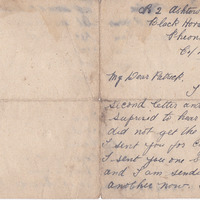 2 Ashton
Black Hors
Phoen
My Dear Patrick.
I
second letter and
suprised to hear
did not get the
I sent you for C
I sent you one S
and I am sendi
another now.